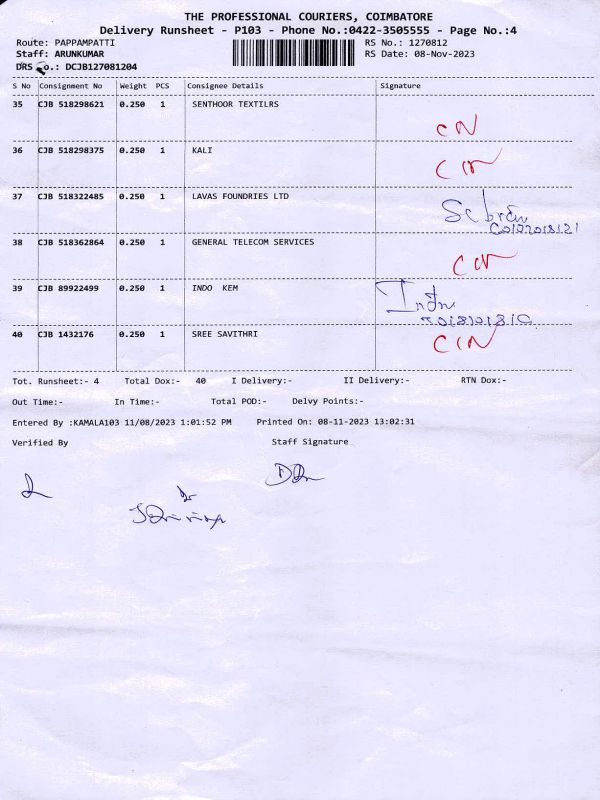 THE PROFESSIONAL COURIERS, COIMBATORE
Delivery Runsheet - P103 - Phone No.:0422-3505555 - Page No.:4
Route: PAPPAMPATTI RS No.: 1270812
Staff: ARUNKUMAR RS Date: 08-Nov-2023
DRS No.: DCJB127081204
S No Consignment No Weight PCS Consignee Details Signature
35 CJB 518298621 0.250 1 SENTHOOR TEXTILRS
CN
36 CJB 518298375 0.250 1 KALI
37 CJB 518322485 0.250 1 LAVAS FOUNDRIES LTD
38 CJB 518362864 0.250 1 GENERAL TELECOM SERVICES
39 CJB 89922499 0.250 1 INDO KEM
40 CJB 1432176 0.250 1 SREE SAVITHRI
Tot. Runsheet:- 4 Total Dox:- 40 I Delivery:- II Delivery:- RTN Dox:-
Out Time:- In Time:- Total POD:- Delvy Points:-
Entered By :KAMALA103 11/08/2023 1:01:52 PM Printed On: 08-11-2023 13:02:31
Verified By Staff Signature